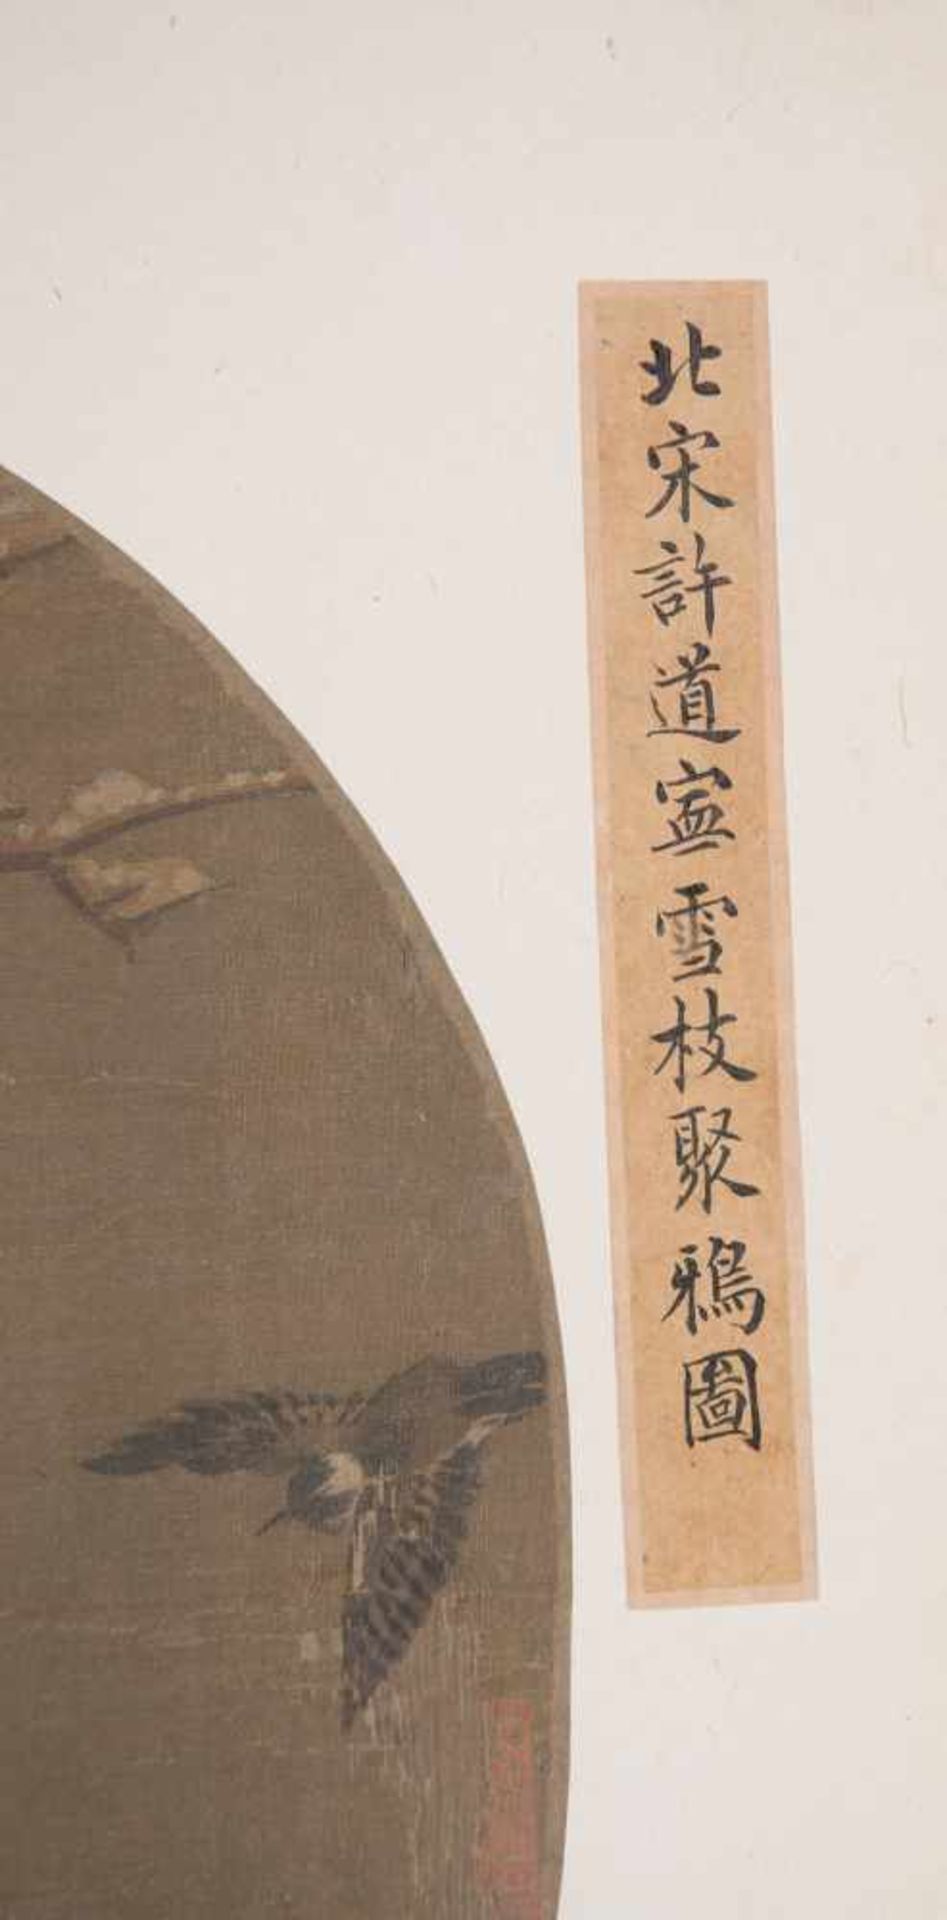 北宋許道寍雪枝聚鴉圖